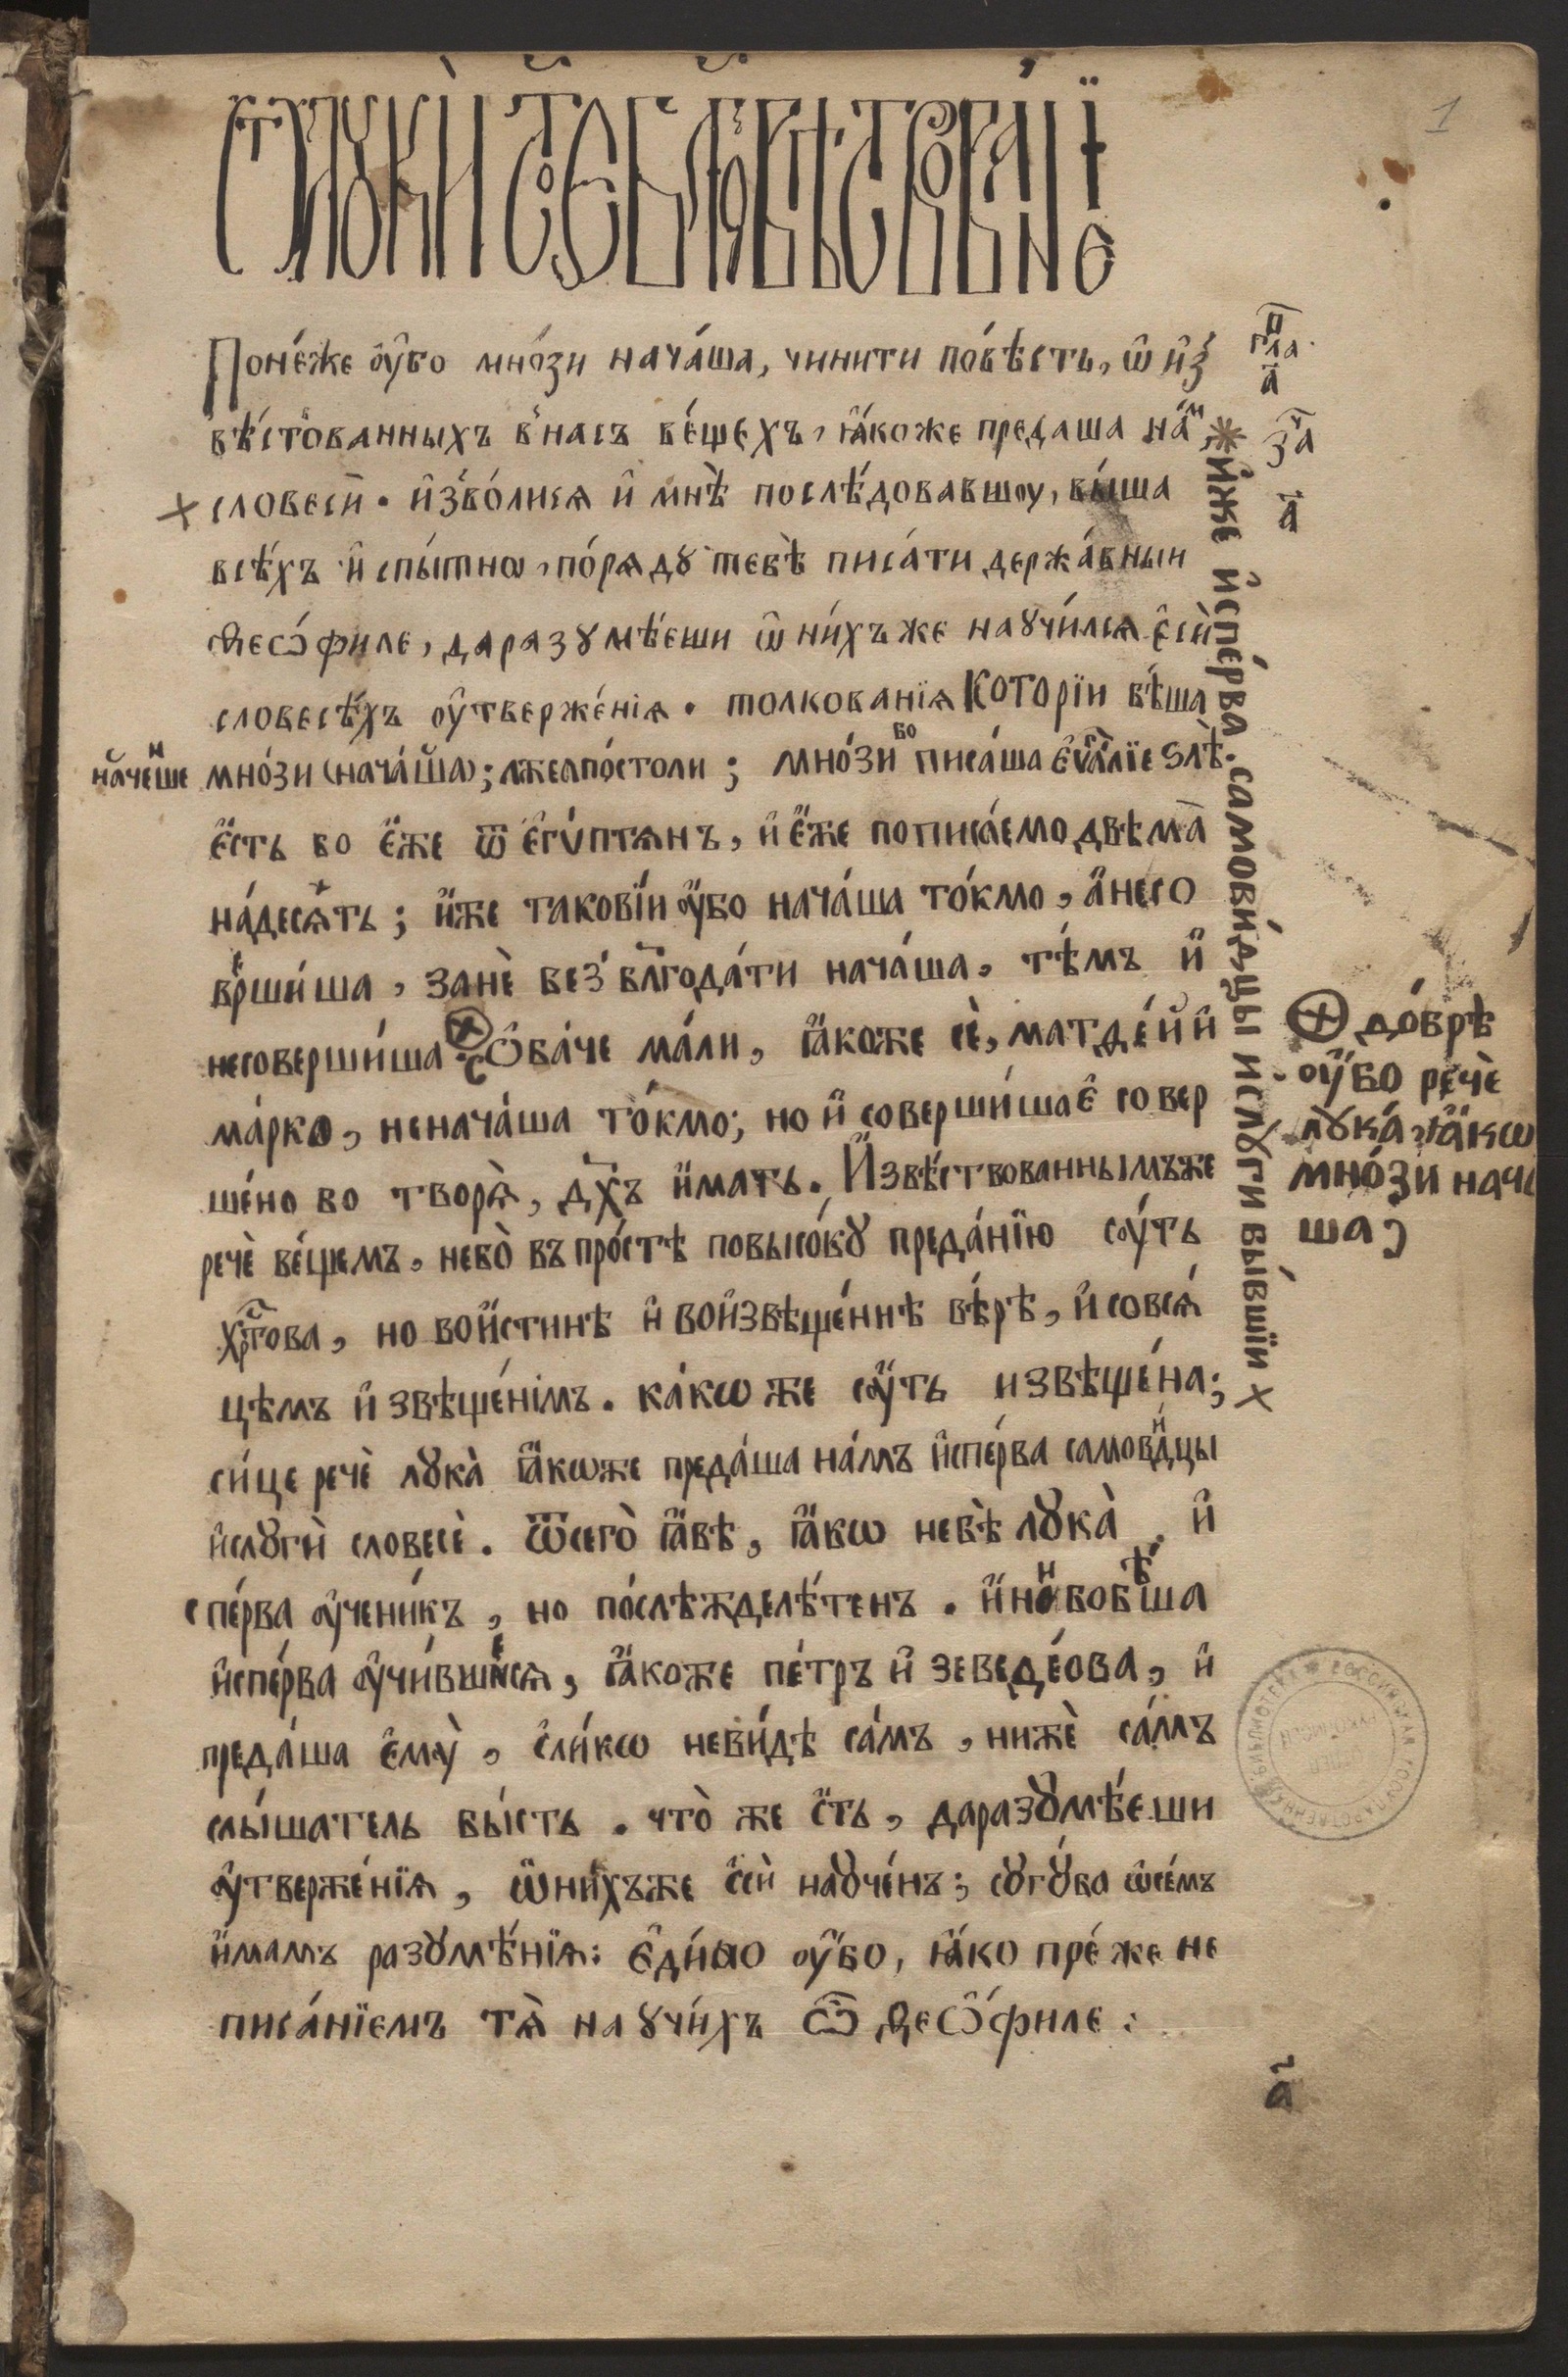 Поне́же ᲂу҆̀бо мно́зи нача́ша, чини́ти по́вѣсть, ѡ҆ и҆з̾
вѣ́стованныхъ в̾насъ ве́щехъ, ꙗ҆́коже предаша на́м
словесѝ. и҆зво́лися и҆ мнѣ̀ послѣ́довавшоу, вы́ша
всѣ́хъ и҆спы́тнѡ, по́рядꙋ тебѣ̀ писа́ти держа́вныи
Ѳеѡ́филе, даразꙋмѣ́еши ѡ҆ ни́хъже наꙋчи́лся є҆сѝ
словесѣ́хъ ᲂу҆твержє́нїя. толкованїя Которїи бѣ́ша
мно́зи (нача́ша); лжеапо́столи; мно́зи бо писа́ша є҆ѵⷢ҇а́лїе ѕлѣ̀.
є҆́сть бо є҆́же ѿ є҆гѵ́птянъ, и҆ є҆́же пописа́емо двѣма̀
на́десѧть; и҆̀же такові́и ᲂу҆̀бо нача́ша то́кмо, а҆ несо
верши́ша, занѐ без̾ бл҃года́ти нача́ша, тѣ́мъ и҆
несоверши́ша. Ѻ҆ба́че ма́ли, ꙗ҆́коже сѐ, матѳе́й и҆
ма́рко, неначаша то́кмо; но и҆ соверши́ша є҆ совер
ше́но бо творѧ̀, дх҃ъ и҆́мать. И҆звѣ́ствованнымъже
речѐ ве́щемъ, небо̀ въ про́стѣ повысо́кꙋ преда́нїю сꙋ́ть
хрⷭ҇това, но вои́стинѣ и҆ воизвѣще́ннѣ вѣ́рѣ, и҆ совсѧ́
цѣмъ и҆звѣще́нїмъ. ка́кѡ же сꙋ́ть извѣще́на;
си́це речѐ лꙋка̀ ꙗ҆́кѡже преда́ша на́мъ и҆спе́рва самови́дцы
и҆слꙋгѝ словесѐ. Ѿсегѡ̀ ꙗ҆́вѣ, ꙗ҆́кѡ небѣ̀ лꙋка̀, и҆
спе́рва ᲂу҆чени́къ, но послѣжделѣ́тенъ. и҆ни́ бобѣ́ша
и҆спе́рва ᲂу҆чи́вшеся, ꙗ҆́коже пе́тръ и҆ зеведе́ова, и҆
преда́ша є҆мꙋ̀, є҆ли́кѡ неви́дѣ са́мъ, нижѐ са́мъ
слы́шатель бы́сть. что̀ же є҆́сть, даразꙋмѣ́еши
ᲂу҆твержє́нїя, ѡ҆ни́хъже є҆сѝ наꙋче́нъ; сꙋгꙋ́ба ѡ҆се́мъ
и҆́мамъ разꙋмѣ́нїя: є҆ди́но ᲂу҆̀бо, ꙗ҆́ко пре́же не
писа́нїемъ тѧ̀ наꙋчи́хъ ѽ Ѳеѻ́филе:
и҆̀же и҆спе́рва самови́дцы ислꙋги бы́вшїи
до́брѣ
ᲂу҆̀бо речѐ
лꙋка̀, ꙗ҆́кѡ
мно́зи нача
ша